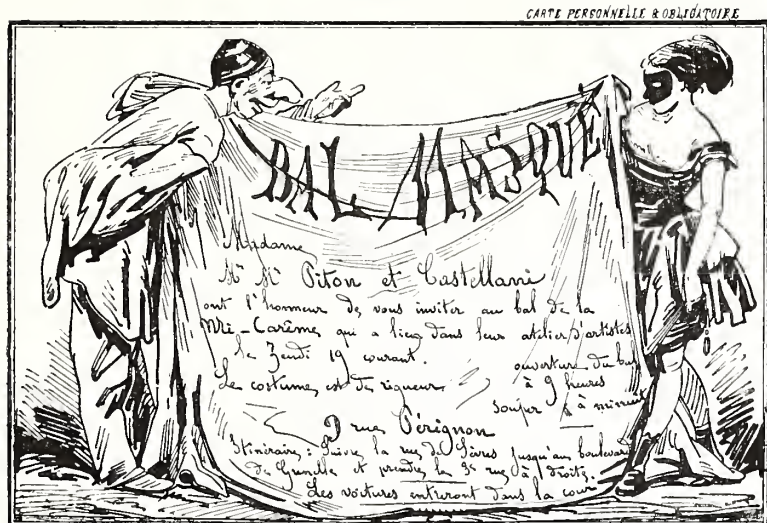 CARTE PERSONNELLE & OBLIGATOIRE
BAL MASQUÉ
Madame
Mrs Mrs Piton et Castellani
ont l'honneur de vous inviter au bal de la
Mi-Carême, qui a lieu dans leur atelier d'artistes
le Jeudi 19 courant.
ouverture du bal
Le costume est de rigueur
à 9 heures
souper à minuit
9 rue Pérignon
Itinéraire : Suivre la rue de Sèvres jusqu'au boulevard
de Grenelle et prendre la 3e rue à droite.
Les voitures entreront dans la cour.